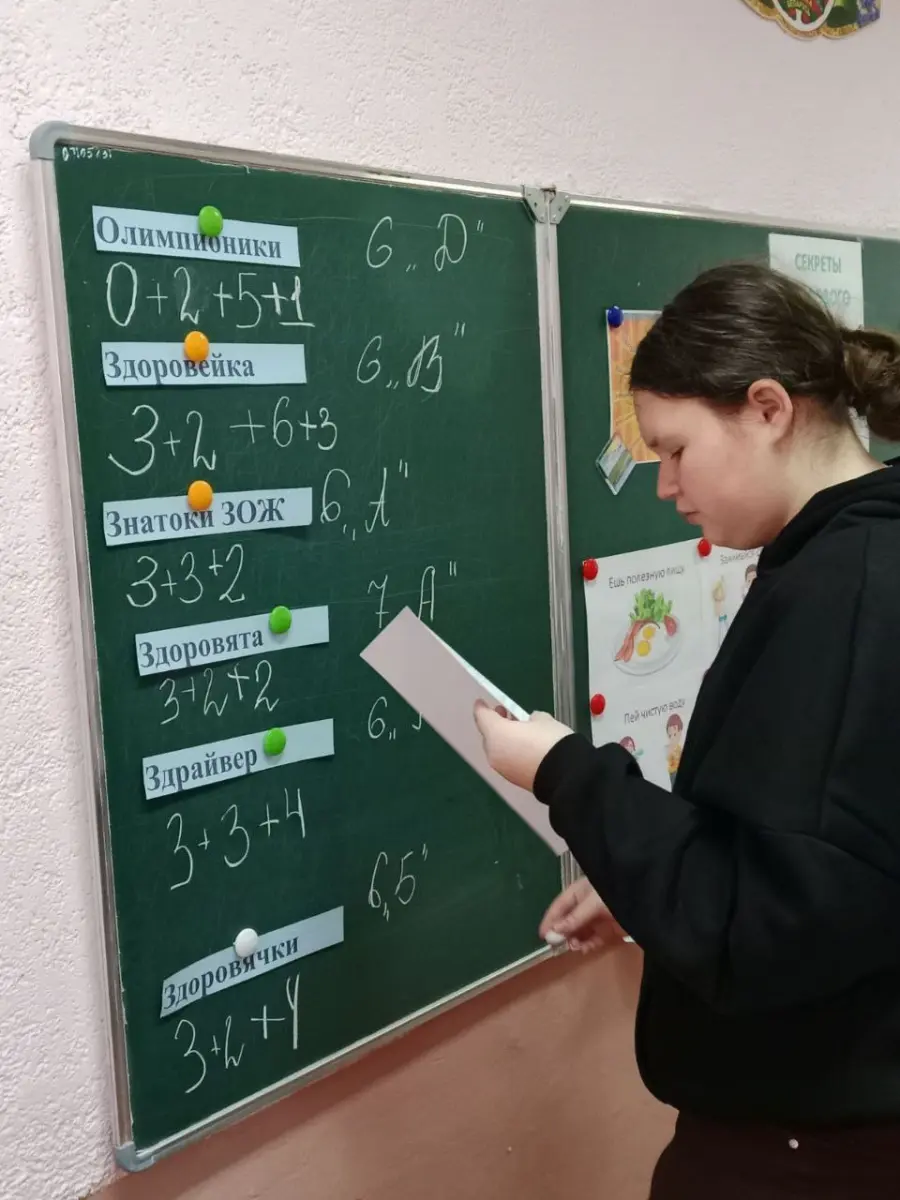 Олимпионики
6 „Д"
0+2+5+1
Здоровейка
6 „В"
3+2+6+3
Знатоки ЗОЖ
6 „А"
3+3+2
7 „А"
Здоровята
3+2+2
6 „
Здрайвер
3+3+4
6 „Б"
Здоровячки
3+2+4
СЕКРЕТЫ
Ешь полезную пищу
Пей чистую воду